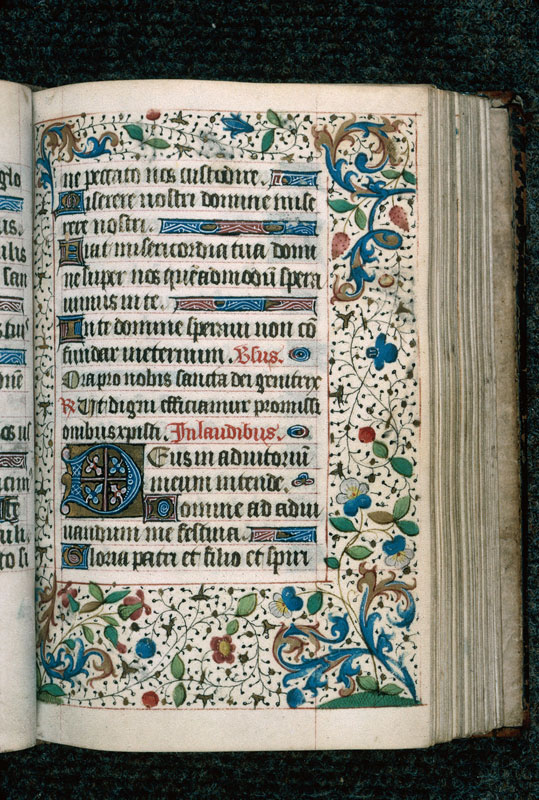 glo
us.
ilis
san
tus
one
os us
ne peccato nos custodire.
Miserere nostri domine mise
rere nostri.
Fiat misericordia tua domi
ne super nos quēadmodū spera
uimus in te.
In te domine speraui non cō
fundar ineternum. Vsus.
Ora pro nobis sancta dei genitrix
R Ut digni efficiamur promissi
onibus xpisti. In laudibus.
Deus in adiutoriū
meum intende.
Domine ad adiu
uandum me festina.
Gloria patri et filio et spiri